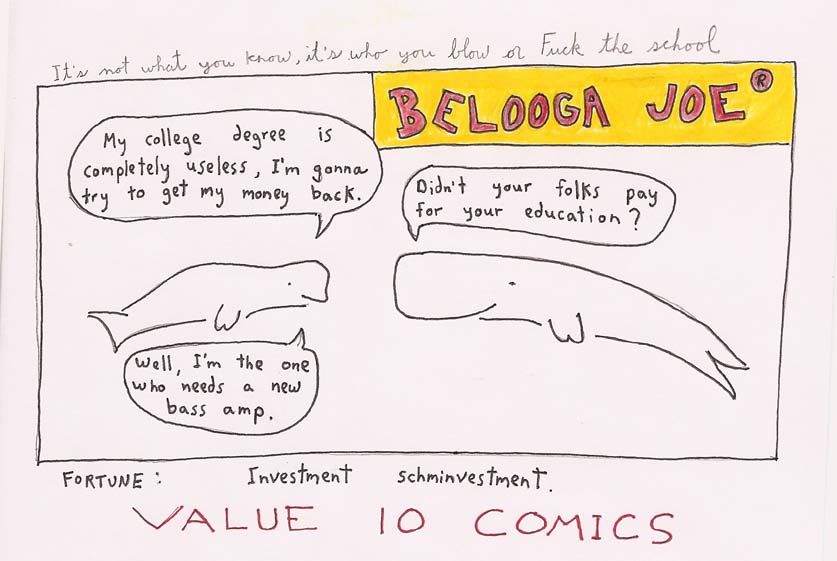 It's not what you know, it's who you blow or Fuck the school
BELOOGA JOE®
My college degree is
completely useless, I'm gonna
try to get my money back.
Didn't your folks pay
for your education?
Well, I'm the one
who needs a new
bass amp.
FORTUNE: Investment schminvestment.
VALUE 10 COMICS